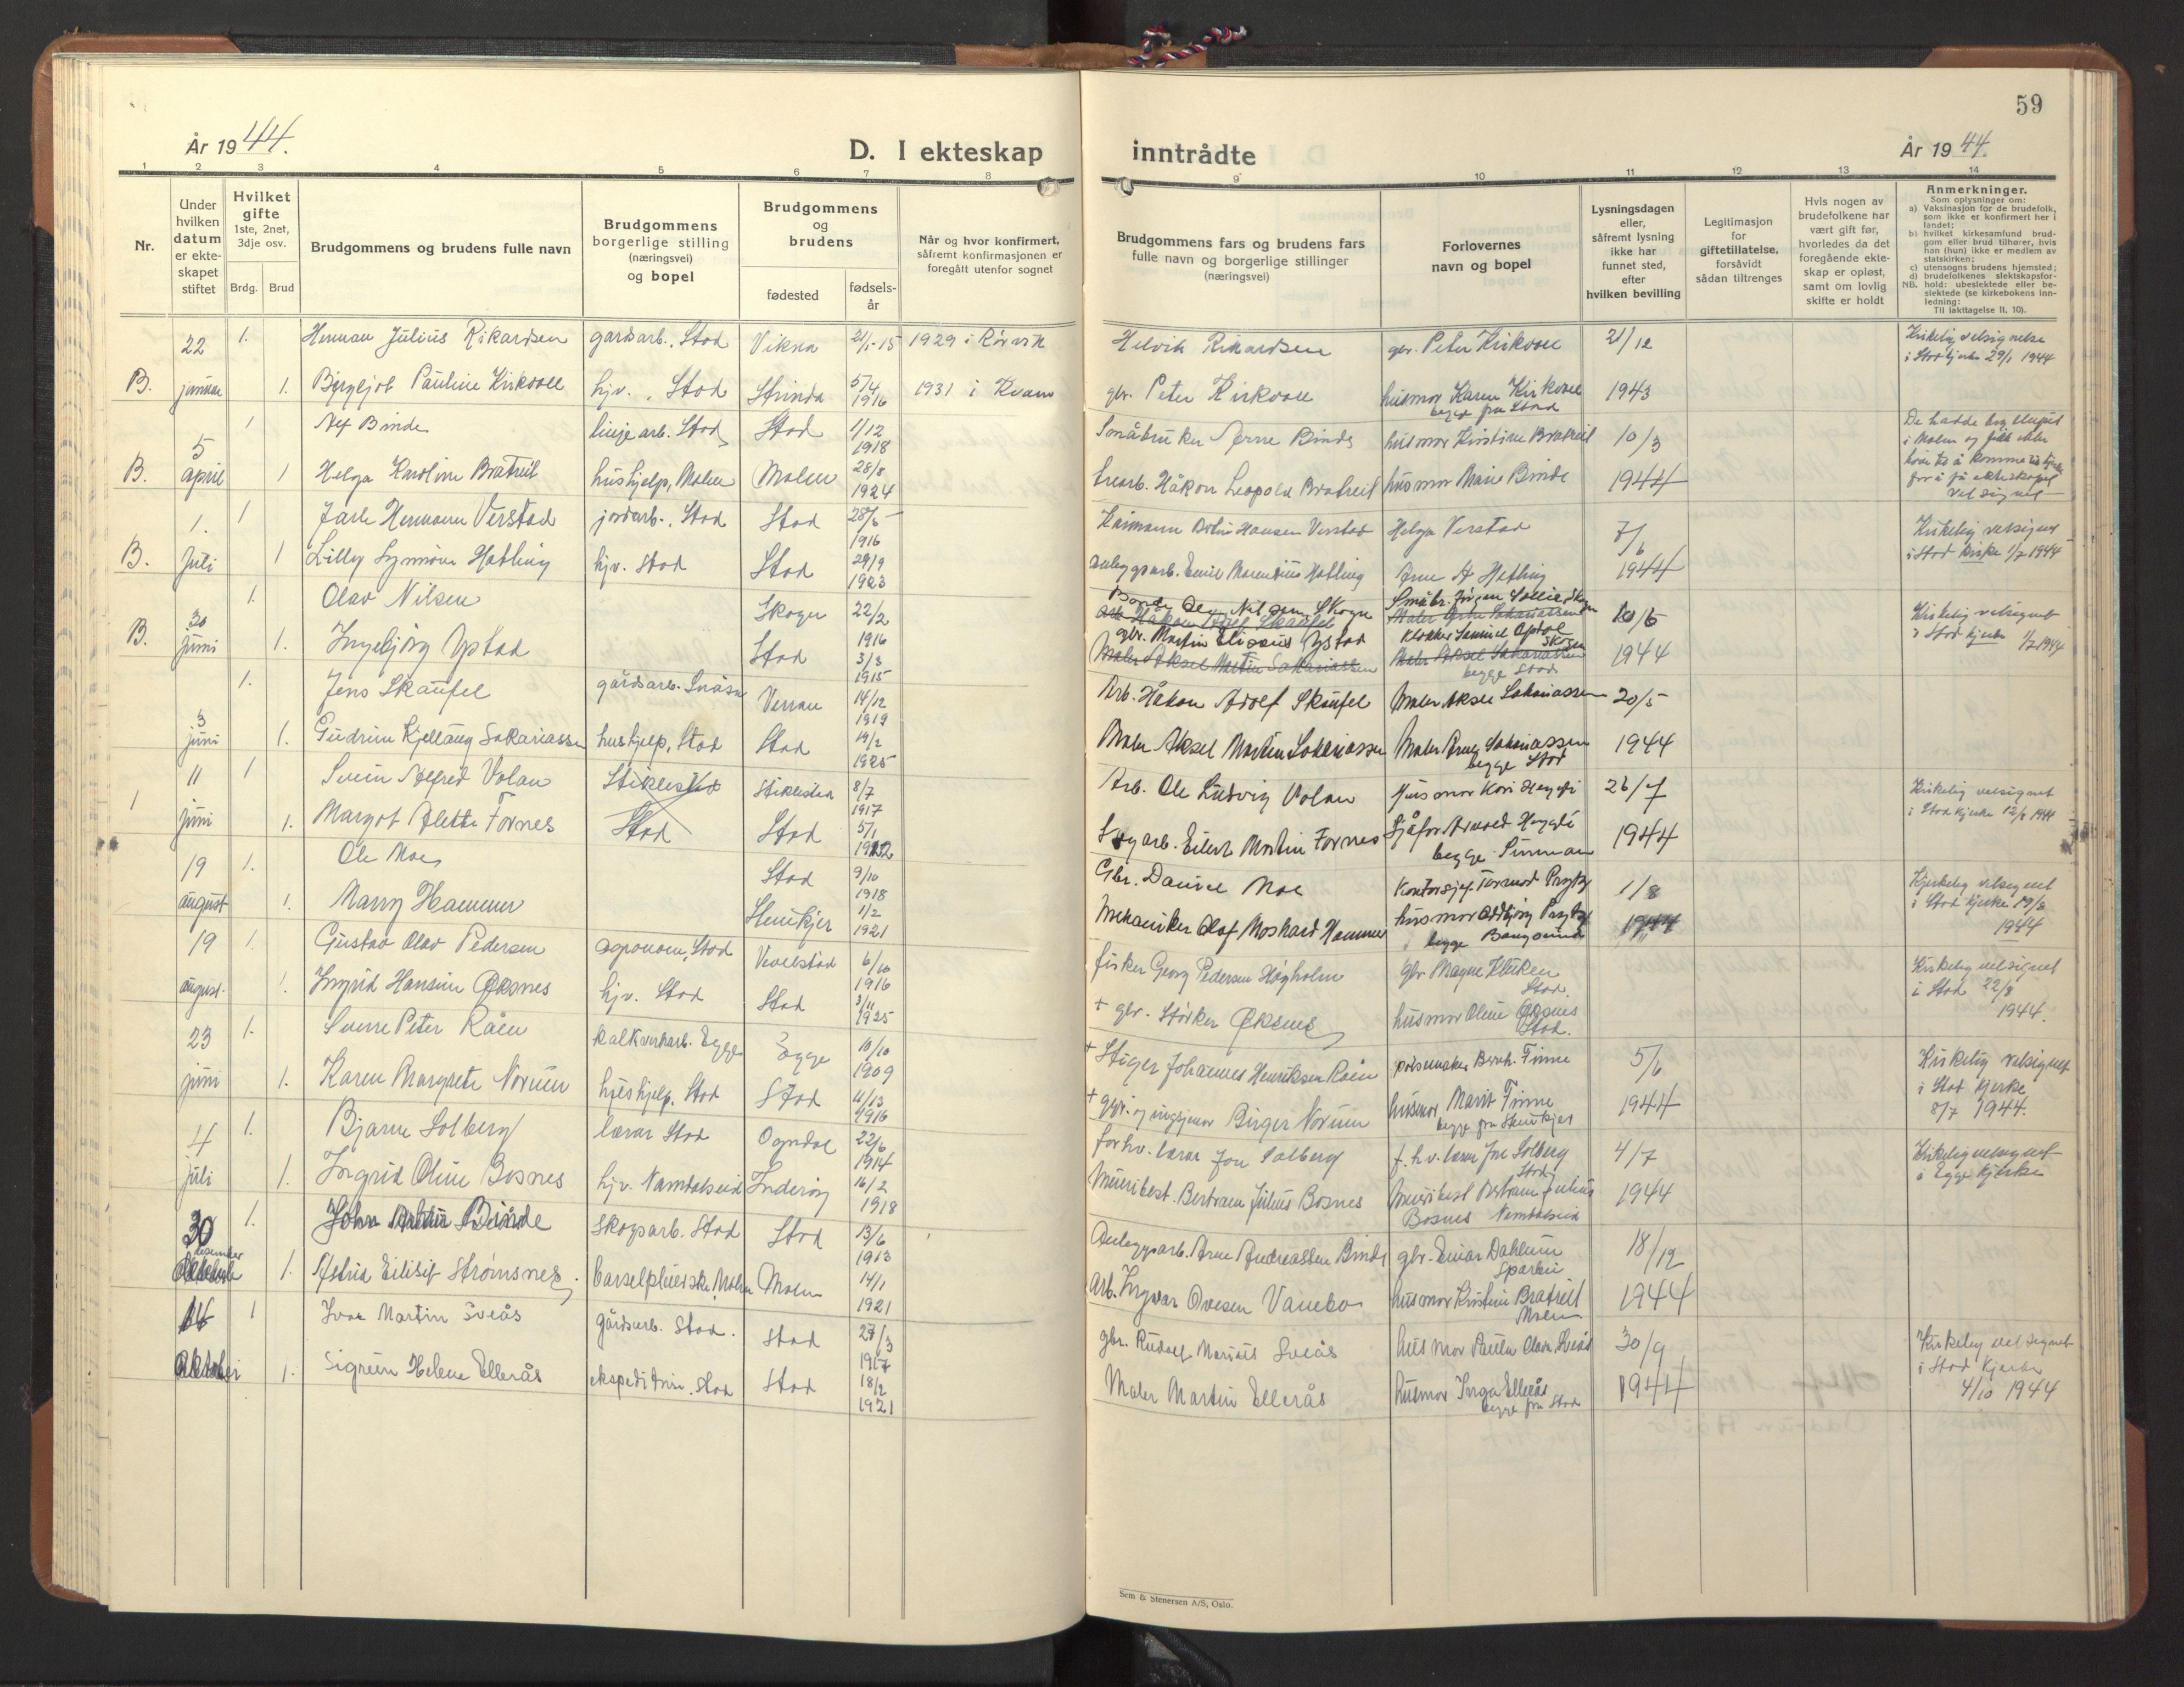 59
År 1944.
D. I ekteskap
inntrådte
År 1944.
1 2 3 4 5 6 7 8 9 10 11 12 13 14
Nr.
Under hvilken datum er ekte-skapet stiftet
Hvilket gifte 1ste, 2net, 3dje osv.
Brdg. Brud
Brudgommens og brudens fulle navn
Brudgommens borgerlige stilling (næringsvei) og bopel
Brudgommens og brudens
fødested
fødsels-år
Når og hvor konfirmert, såfremt konfirmasjonen er foregått utenfor sognet
Brudgommens fars og brudens fars fulle navn og borgerlige stillinger (næringsvei)
Forlovernes navn og bopel
Lysningsdagen eller, såfremt lysning ikke har funnet sted, efter hvilken bevilling
Legitimasjon for giftetillatelse, forsåvidt sådan tiltrenges
Hvis nogen av brudefolkene har vært gift før, hvorledes da det foregående ekte-skap er opløst, samt om lovlig skifte er holdt
Anmerkninger.
Som oplysninger om:
a) Vaksinasjon for de brudefolk, som ikke er konfirmert her i landet;
b) hvilket kirkesamfund brud-gom eller brud tilhører, hvis han (hun) ikke er medlem av statskirken;
c) utensogns brudens hjemsted;
d) brudefolkenes slektskapsfor-
NB. hold: ubeslektede eller be-slektede (se kirkebokens inn-ledning:
Til iakttagelse II, 10).
22 1. Herman Julius Rikardsen gardsarb., Stod Vikna 21/1-15 1929 i Rørvik Helvik Rikardsen gbr. Peter Kirkvoll 21/12 Kirkelig velsignelse
i Stod kjerke 29/1 1944
B. januar 1. Pauline Kirkvoll hjv., Stod Strinda 5/4 1916 1931 i Kvam gbr. Peter Kirkvoll husmor Karen Kirkvoll 1943
begge fra Stod
5 1 Binde linjearb. Stod Stod 1/12 1918 Småbruker Arne Binde husmor Kirstine Bratreit 10/3 De hadde bryllupet
i Malm og fikk
B. april 1 Helga Karoline Bratreit hushjelp, Malm Malm 28/8 1924 Håkon Leopold Bratreit husmor Marie Binde 1944
for å få ekteskapet
velsignet
1. 1 Jarle Hermann Verstad jordarb., Stod Stod 28/6 1916 Hansen Verstad Helga Verstad 7/6 Kirkelig velsignet
i Stod kirke 1/7 1944
B. Juli 1 Lilly Synnøve Hatling hjv. Stod Stod 29/9 1923 anleggsarb. Emil Hatling Arne Hatling 1944
30 1. Olav Nilsen Skogn 22/2 1916 Bonde Nilsen, Skogn 10/6 Kirkelig velsignet
i Stod kjerke 1/7 1944
B. Juni 1. Ingebjørg Ystad Stod 3/3 1915 gbr. Martin Elisæus Ystad 1944
begge Stod
3 1. Jens Skaufel gårdsarb. Snåsa Verran 14/12 1919 Arb. Håkon Adolf Skaufel Maler Aksel Sakariassen 20/5
juni 1. Gudrun Kjellaug Sakariassen hushjelp, Stod Stod 14/2 1925 Maler Aksel Martin Sakariassen Maler Arne Sakariassen 1944
begge Stod
11 1 Svein Alfred Volan Stiklestad Stiklestad 8/7 1917 Arb. Ole Ludvig Volan Husmor Kari 26/7 Kirkelig velsignet
i Stod kjerke 12/6 1944
1 juni 1. Margot Alette Fornes Stod Stod 5/1 1922 Eilert Martin Fornes Sjåfør Arnold 1944
begge
19 1. Ole Moe Stod 9/10 1918 Gbr. Daniel Moe Kontorsjef Tormod 1/8 Kirkelig velsignet
i Stod kjerke 19/8
1944
august 1. Marry Hammer Steinkjer 1/2 1921 Mekaniker Olaf Hammer husmor Oddbjørg 1944
begge
19 1. Gustav Olav Pedersen agronom, Stod Vevelstad 6/10 1916 fisker Georg Pedersen Høgholm gbr Magne
Stod. Kirkelig velsignet
i Stod 22/8
1944.
august. 1. Ingrid Hansine Øksnes hjv. Stod Stod 3/11 1925 + gbr. Størker Øksnes husmor Oline Øksnes
Stod.
23 1. Sverre Peter Råen kalkverkarb. Egge Egge 10/10 1909 + Stiger Johannes Henriksen Råen Bernh. Finne 5/6 Kirkelig velsignet
i Stod kjerke
8/7 1944.
juni 1. Karen Margrete Norum hushjelp. Stod Stod 11/13 1916 + Birger Norum husmor Marit Finne 1944
begge fra Steinkjer
4 1. Bjarne Solberg lærer Stod Ogndal 22/6 1914 forhv. lærer Jon Solberg f.h.v. lærer Jon Solberg
Stod 4/7 Kirkelig velsignet
i Egge kjerke
juli 1. Ingrid Oline Bosnes hjv. Namdalseid Inderøy 16/2 1918 Bertram Julius Bosnes Bertram Julius
Bosnes Namdalseid 1944
30 1. John Binde skogsarb. Stod Stod 13/6 1913 Anleggsarb. Arne Andreassen Binde gbr. Einar Dahlum
Sparbu 18/12
desember 1. Astrid Eilisif Strømsnes barselpleierske, Malm Malm 14/1 1921 Arb. Ingvar Ovesen Vanebo husmor Kristine Bratreit
Malm 1944
14 1 Ivar Martin Sveås gårdsarb. Stod. Stod 27/3 1917 gbr. Rudolf Marius Sveås husmor Paula Sveås 30/9 Kirkelig velsignet
i Stod kjerke
4/10 1944
Oktober 1. Sigrun Helene Ellerås Stod Stod 18/2 1921 Maler Martin Ellerås husmor Inga Ellerås
begge fra Stod 1944
Sem & Stenersen A/S, Oslo.